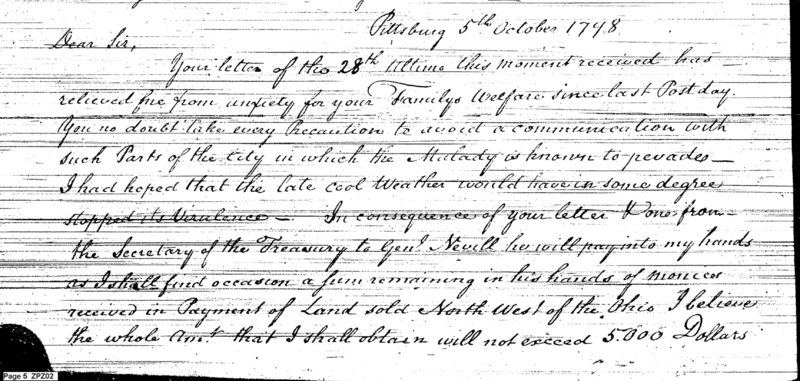 Pittsburg 5th October 1798
Dear Sir,
Your letter of the 28th Ultimo this moment received has
relieved me from anxiety for your Familys Welfare since last Post day.
You no doubt take every Precaution to avoid a communication with
such Parts of the City in which the Malady is known to pevades —
I had hoped that the late cool Weather would have in some degree
stopped its Virulence — In consequence of your letter & one from
the Secretary of the Treasury to Genl. Nevill he will pay into my hands
as I shall find occasion a sum remaining in his hands of monies
received in Payment of Land sold North West of the Ohio I believe
the whole Amt. that I shall obtain will not exceed 5.000 Dollars
Page 5 ZPZ02